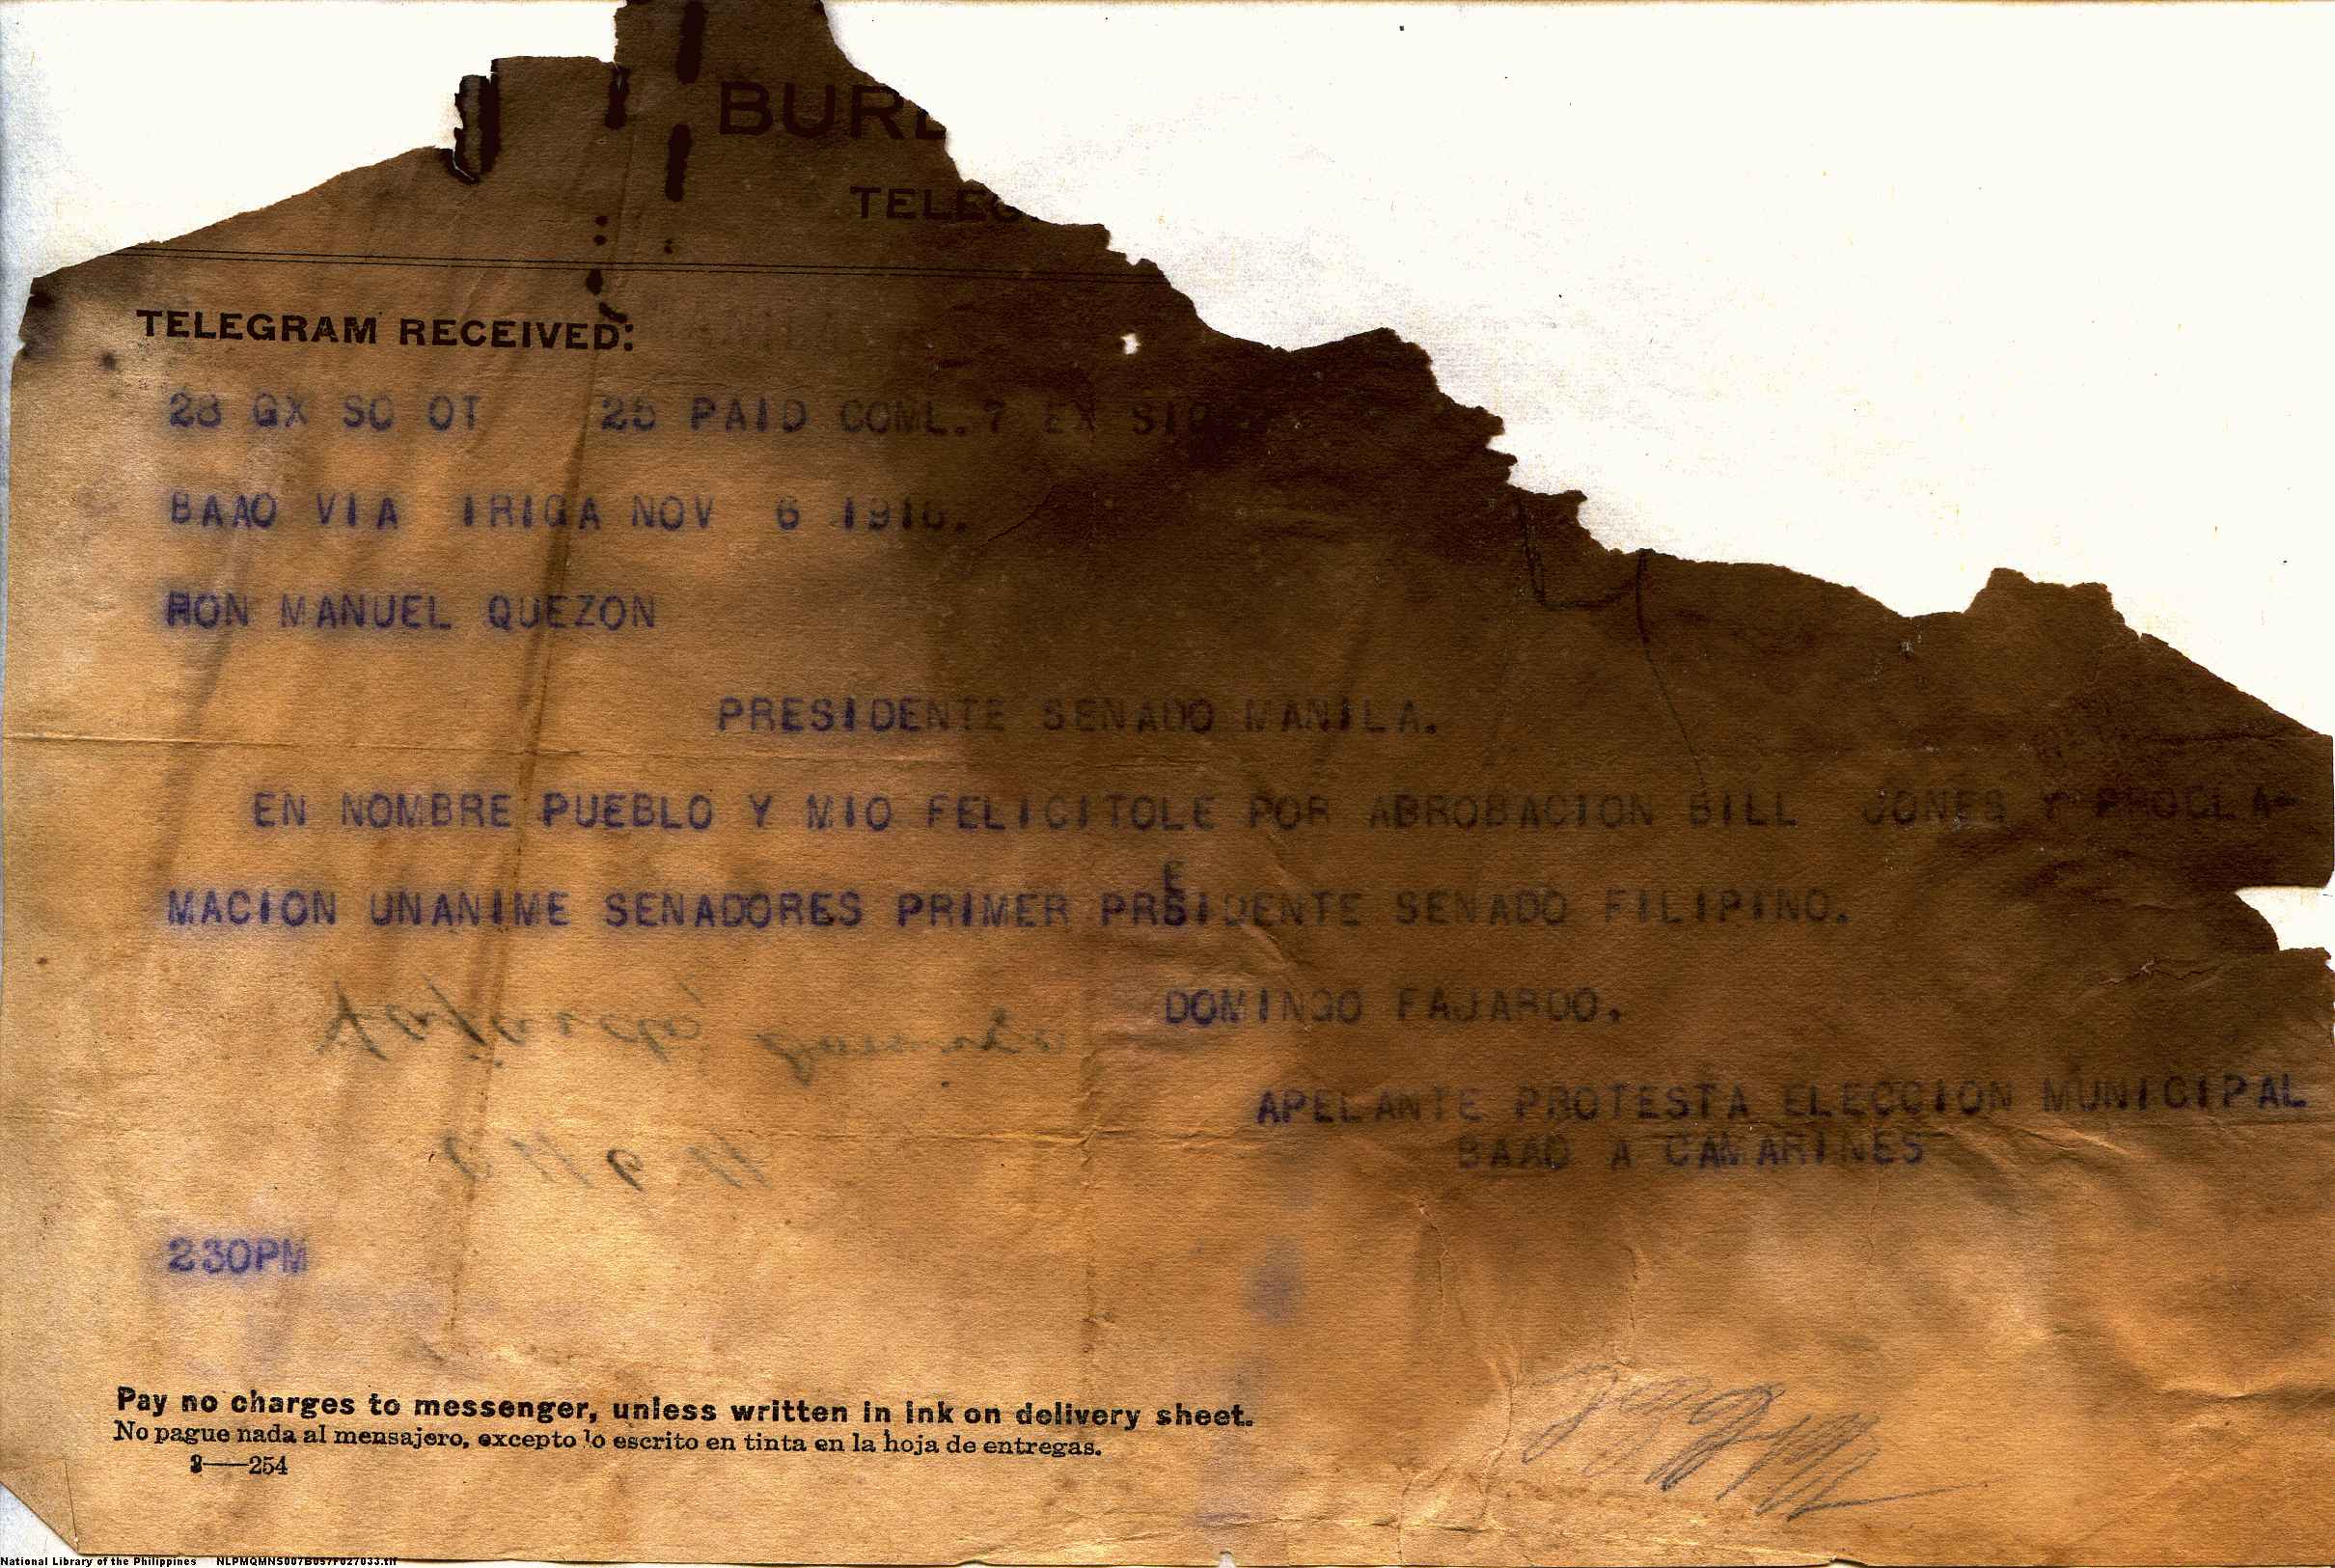 BURE
TELEG
TELEGRAM RECEIVED:
28 GX SC OT 25 PAID COML. 7 EX SIG
BAAO VIA IRIGA NOV 6 1916.
HON MANUEL QUEZON
PRESIDENTE SENADO MANILA.
EN NOMBRE PUEBLO Y MIO FELICITOLE POR ABROBACION BILL JONES Y PROCLA-
MACION UNANIME SENADORES PRIMER PRESIDENTE SENADO FILIPINO.
DOMINGO FAJARDO.
APELANTE PROTESTA ELECCION MUNICIPAL
BAAO A CAMARINES
230PM
Pay no charges to messenger, unless written in ink on delivery sheet.
No pague nada al mensajero, excepto lo escrito en tinta en la hoja de entregas.
2—254
National Library of the Philippines NLPMQMNS007B057F027033.tif